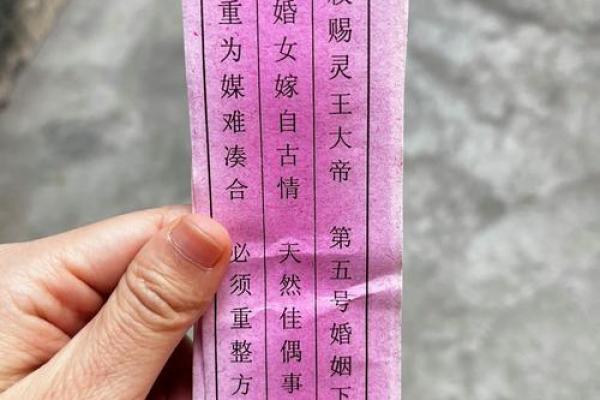 赐灵王大帝 第五号婚姻下
婚女嫁自古情 天然佳偶事
重为媒难凑合 必须重整方